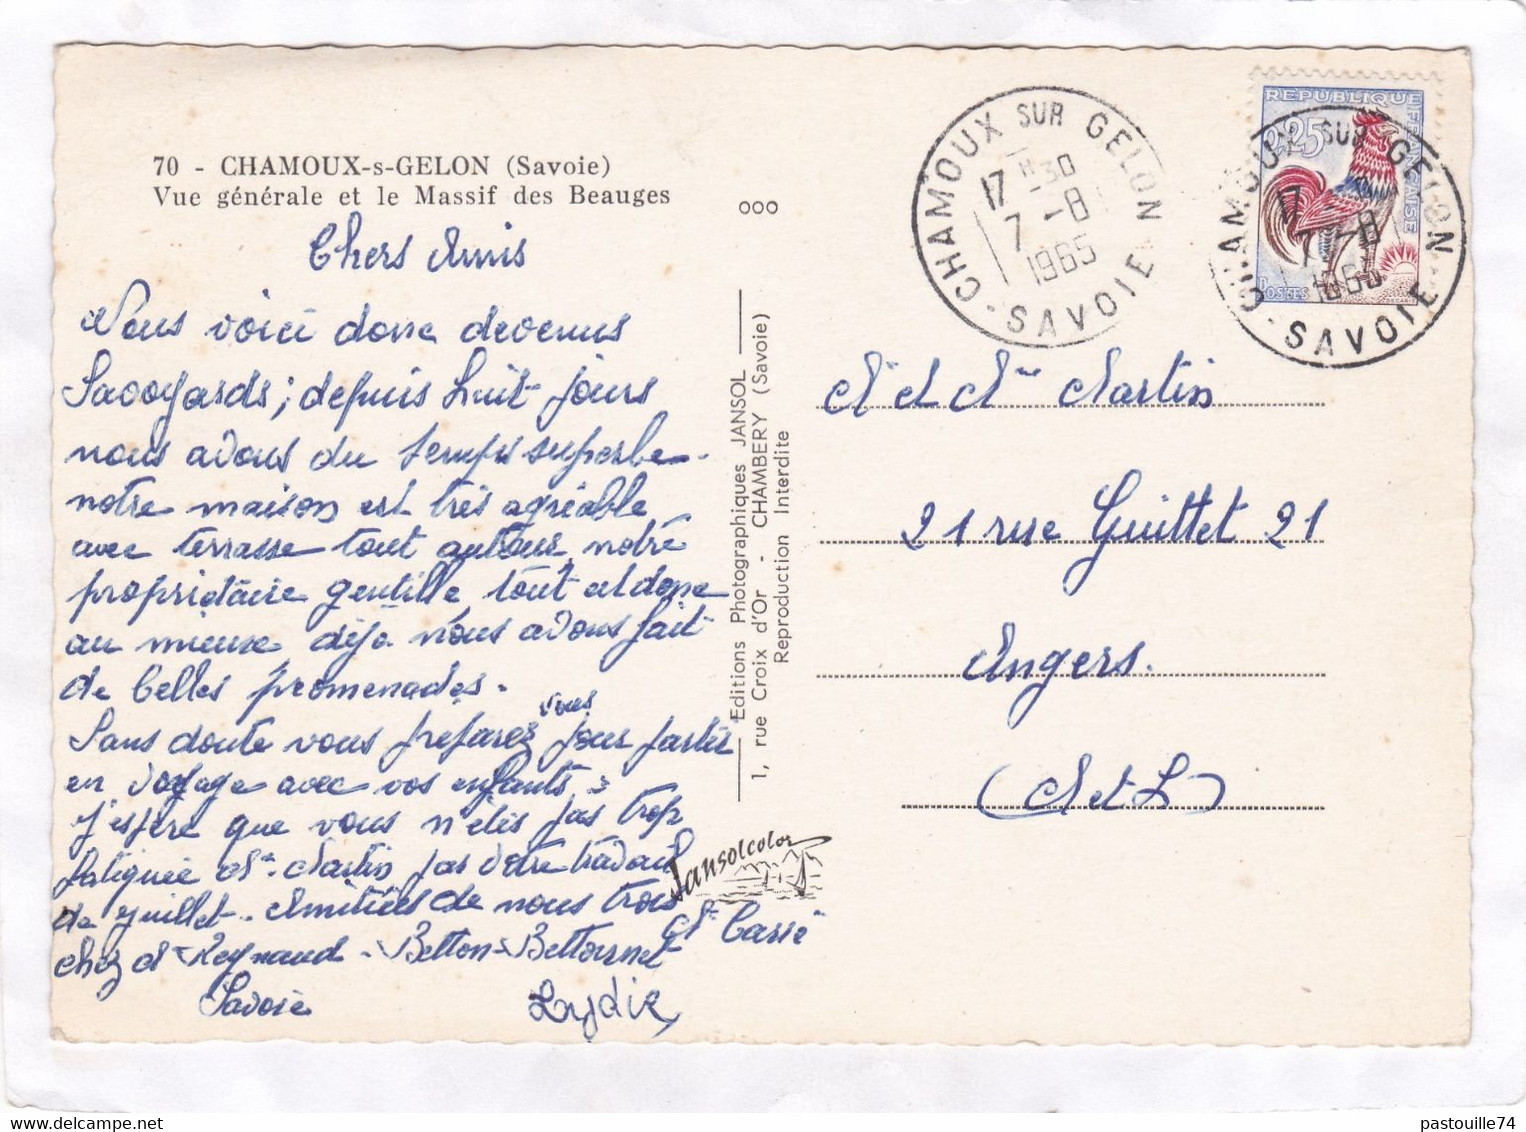 70 - CHAMOUX-s-GELON (Savoie)
Vue générale et le Massif des Beauges
ooo
Chers Amis
Nous voici donc devenus
Savoyards ; depuis huit jours
nous avons du temps superbe.
notre maison est très agréable
avec terrasse tout autour, notre
propriétaire gentille tout est donc
au mieux déjà nous avons fait
de belles promenades.
Sans doute vous preparez vous pour partir
en voyage avec vos enfants ;
j'espère que vous n'êtes pas trop
fatiguée Me Martin par votre travail
de juillet. Amitiés de nous trois
chez M Reynaud - Betton-Bettonnet
Savoie
Lydie
Editions Photographiques JANSOL
1, rue Croix d'Or - CHAMBERY (Savoie)
Reproduction Interdite
Jansolcolor
CHAMOUX SUR GELON
17 H 30
7 - 8
1965
SAVOIE
REPUBLIQUE FRANÇAISE
0,25
POSTES
CHAMOUX SUR GELON
17
7 - 8
1965
SAVOIE
M et Mme Martin
21 rue Guittet 21
Angers.
(M et L)
pastouille74